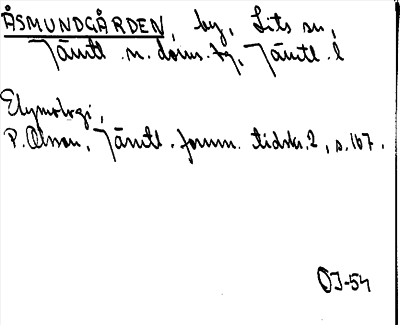 ÅSMUNDGÅRDEN, by, Lits sn,
Jämtl. n. doms. tg, Jämtl. l
Etymologi,
P. Olsson, Jämtl. fornm. tidskr. 2, s. 167.
OJ-54